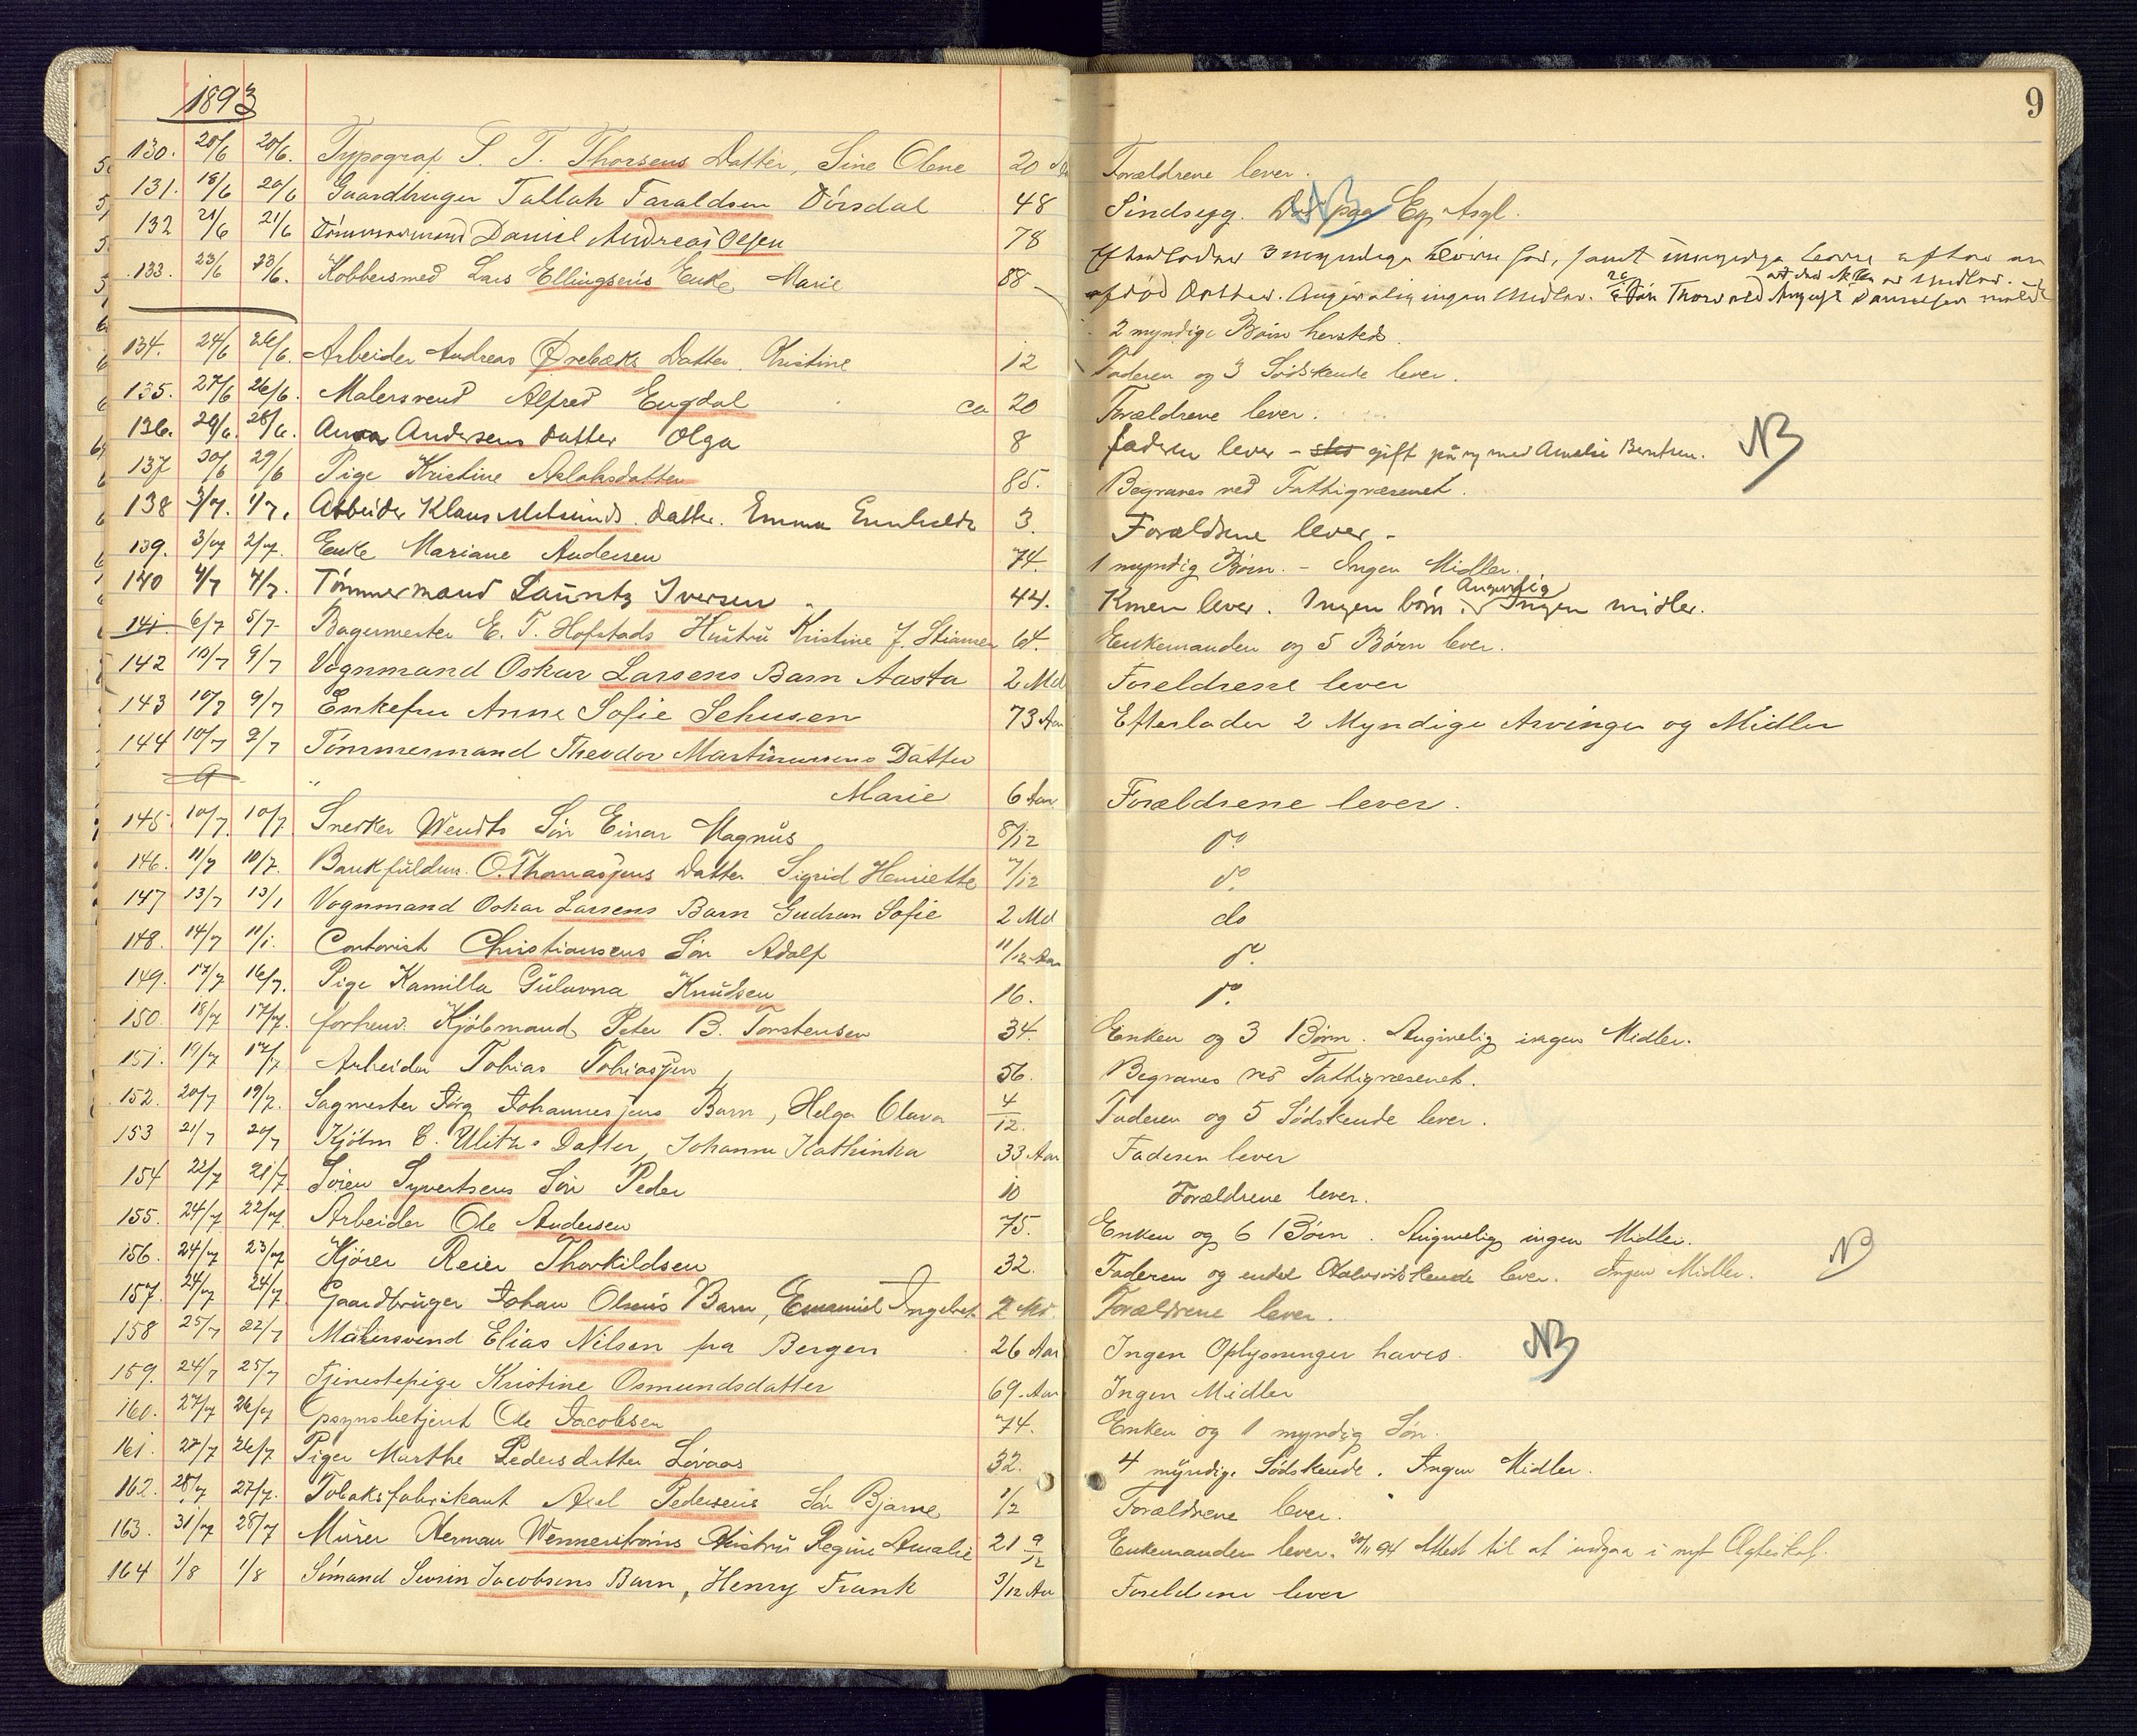 1893
9
130. 20/6 20/6. Typograf S. T. Thorsens Datter, Sine Olene 20 Forældrene lever.
131. 18/6 20/6 Gaardbruger Tallak Taraldsen Dörsdal 48 Sindsyg. Död paa Eg Asyl. NB
132 21/6 21/6 Tömmermand Daniel Andreas Olsen 78 Efterlader 3 myndige Börn her, samt myndige Börn efter en
133. 23/6 23/6. Kobbersmed Lars Ellingsens Enke Marie 88 afdöd Datter. Angivelig ingen Midler. Sön Thorvald August Danielsen
2 myndige Börn hersteds.
134. 24/6 26/6. Arbeider Andreas Ørebæks Datter Kristine 12 Faderen og 3 Södskende lever.
135. 27/6 26/6. Malersvend Alfred Engdal ca 20 Forældrene lever.
136. 29/6. 28/6. Anna Andersens Datter Olga 8 faderen lever – gift på ny med Amelie Berntsen. NB
137 30/6 29/6 Pige Kristine Aslaksdatter 85. Begraves ved Fattigvæsenet.
138 3/7. 1/7. Arbeider Klaus Mesunds Datter. Emma 3. Forældrene lever –
139. 3/7 2/7. Enke Mariane Andersen 74. 1 myndig Barn. – Ingen Midler.
140 4/7 4/7. Tömmermand Lauritz Iversen 44. Konen lever. Ingen börn. Angivelig Ingen midler.
141. 6/7 5/7- Bagermester E. T. Hofstads Hustru Kristine f. Stiansen 64. Enkemanden og 5 Børn lever.
142 10/7 9/7 Vognmand Oskar Larsens Barn Aasta 2 Md Foreldrene lever
143 10/7 9/7 Enkefru Anne Sofie Sehusen 73 Aar Efterlader 2 Myndige Arvinger og Midler
144 10/7 9/7 Tömmermand Theodor Martinussens Datter
" Marie 6 Aar Forældrene lever.
145 10/7. 10/7 Snedker Wendts Sön Einar Magnus 8/12 do
146. 11/7 10/7. Bankfuldm. O. Thomassens Datter Sigrid Henriette 7/12 do
147 13/7 13/7 Vognmand Oskar Larsens Barn Gudrun Sofie 2 Md do
148. 14/7 11/7. Contorist Christiansens Sön Adolf 11/12 Aar do
149. 17/7 16/7. Pige Kamilla Gulovna Knudsen 16. do
150. 18/7 17/7. forhenv. Kjöbmand Peter B. Torstensen 34. Enken og 3 Børn. Angivelig ingen Midler.
151. 19/7 17/7 Arbeider Tobias Tobiassen 56. Begraves ved Fattigvæsenet.
152. 20/7 19/7. Sagmester Jörg Johannessens Barn, Helga Olava 4/12. Faderen og 5 Södskende lever.
153 21/7 20/7 Kjöbm C. Ulitzs Datter, Johanne Kathinka 33 Aar Faderen lever
154 22/7 21/7 Sören Syvertsens Sön Peder 10 Forældrene lever.
155. 24/7 22/7. Arbeider Ole Andersen 75. Enken og 6 Børn. Angivelig ingen Midler.
156. 24/7 23/7 Kjörer Reier Thorkildsen 32. Faderen og endel Halvsödskende lever. Ingen Midler. NB
157. 24/7 24/7 Gaardbruger Johan Olsens Barn, Emanuel Ingebret 2 Md. Forældrene lever.
158 25/7 22/7 Malersvend Elias Nilsen fra Bergen 26 Aar Ingen Oplysninger haves. NB
159. 24/7 25/7 Tjenestepige Kristine Osmundsdatter 69. Aar Ingen Midler
160. 27/7 26/7 Opsynsbetjent Ole Jacobsen 74. Enken og 1 myndig Sön.
161. 27/7 26/7 Pige Marthe Pedersdatter Lövaas 32. 4 myndige Södskende. Ingen Midler.
162. 28/7 27/7. Tobaksfabrikant Axel Pedersens Sön Bjarne 1/2 Forældrene lever.
163. 31/7 28/7 Murer Herman Wennerströms Hustru Regine Amalie 21 9/12 Enkemanden lever. 20/11 94 Attest til at indgaa i nyt Ægteskab.
164 1/8 1/8 Sömand Sevrin Jacobsens Barn, Henry Frank 3/12 Aar Foreldrene lever